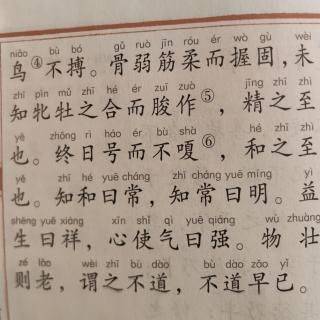 niǎo bù bó gǔ ruò jīn róu ér wò gù wèi
鸟④不搏。骨弱筋柔而握固，未
zhī pìn mǔ zhī hé ér zuī zuò jīng zhī zhì
知牝牡之合而朘作⑤，精之至
yě zhōng rì háo ér bù shà hé zhī zhì
也。终日号而不嗄⑥，和之至
yě zhī hé yuē cháng zhī cháng yuē míng yì
也。知和曰常，知常曰明。益
shēng yuē xiáng xīn shǐ qì yuē qiáng wù zhuàng
生曰祥，心使气曰强。物壮
zé lǎo wèi zhī bù dào bù dào zǎo yǐ
则老，谓之不道，不道早已。